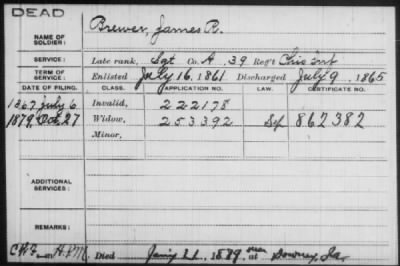 DEAD
NAME OF SOLDIER: Brewer, James R.
SERVICE: Late rank, Sgt Co. A, 39 Reg't Ohio Inf
TERM OF SERVICE: Enlisted July 16, 1861 Discharged July 9, 1865
DATE OF FILING. CLASS. APPLICATION NO. LAW. CERTIFICATE NO.
1867, July 6 Invalid, 222178
1879, Oct 27 Widow, 253392 862382
Minor,
ADDITIONAL SERVICES:
REMARKS:
Died 1879 near at Downey, Ia.